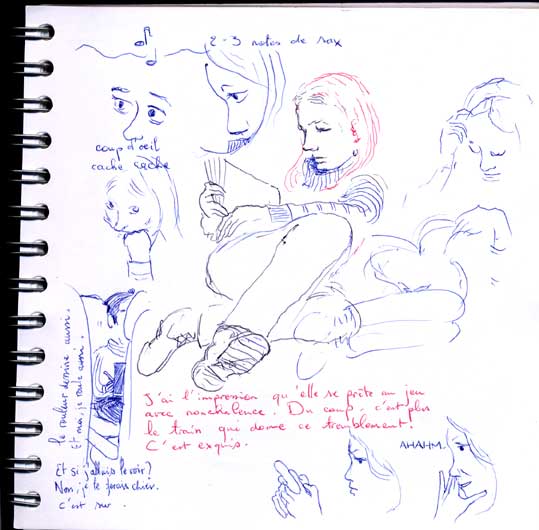 2-3 notes de sax
coup d'oeil
cache cache
le rouleur dessine aussi.
Et moi, je roule aussi.
J'ai l'impression qu'elle se prête au jeu
avec nonchalence. Du coup, c'est plus
le train qui donne ce tremblement!
C'est exquis.
AHAHM.
Et si j'allais le voir?
Non, je le ferais chier.
c'est sur.